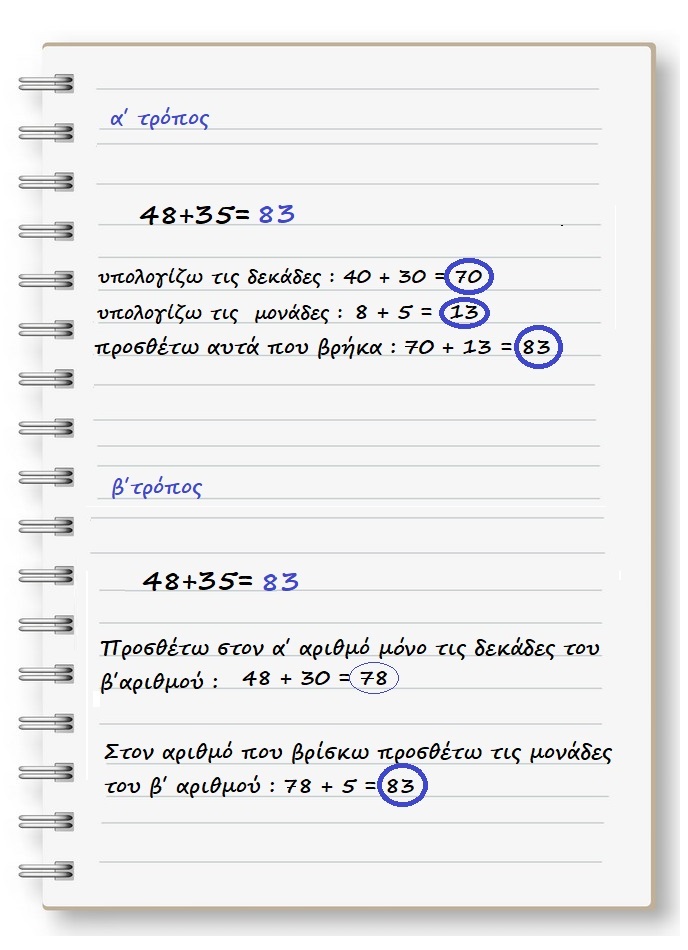 α' τρόπος
48+35= 83
υπολογίζω τις δεκάδες : 40 + 30 = 70
υπολογίζω τις μονάδες : 8 + 5 = 13
προσθέτω αυτά που βρήκα : 70 + 13 = 83
β'τρόπος
48+35= 83
Προσθέτω στον α' αριθμό μόνο τις δεκάδες του
β'αριθμού : 48 + 30 = 78
Στον αριθμό που βρίσκω προσθέτω τις μονάδες
του β' αριθμού : 78 + 5 = 83